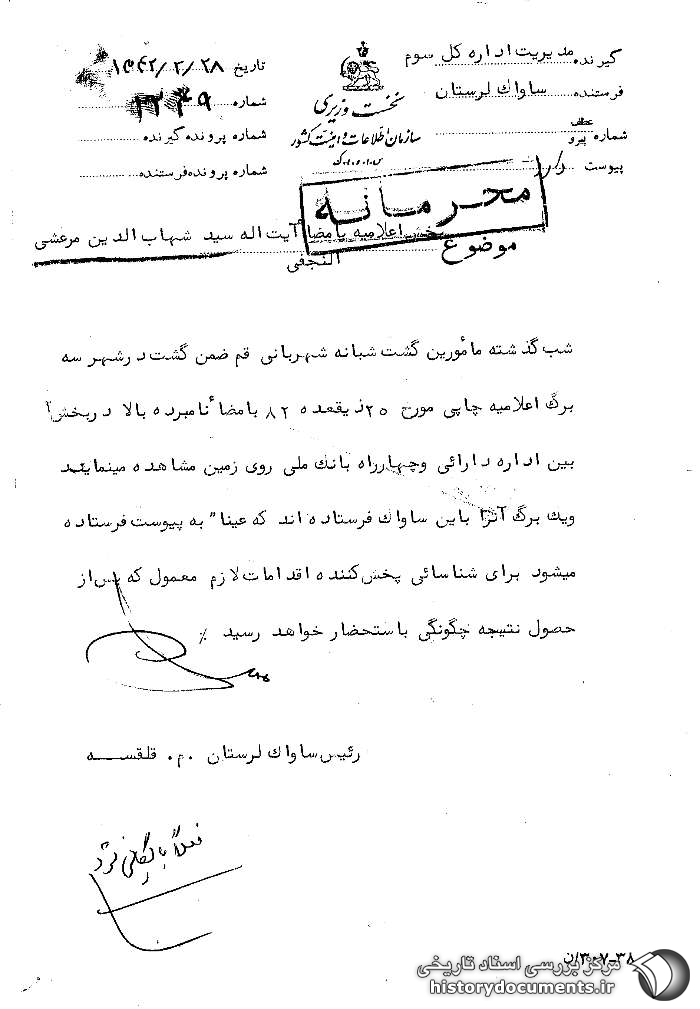 گیرنده مدیریت اداره کل سوم
فرستنده ساواک لرستان
شماره عطف پیرو
پیوست دارد
نخست وزیری
سازمان اطلاعات و امنیت کشور
س.ا.و.ا.ک
تاریخ ۱۳۴۲/۲/۲۸
شماره
شماره پرونده گیرنده
شماره پرونده فرستنده
محرمانه
موضوع پخش اعلامیه بامضاء آیت اله سید شهاب الدین مرعشی
النجفی
شب گذشته مأمورین گشت شبانه شهربانی قم ضمن گشت در شهر سه
برگ اعلامیه چاپی مورخ ۲۵ ذیقعده ۸۲ بامضاء نامبرده بالا در بخش ۱
بین اداره دارائی و چهارراه بانک ملی روی زمین مشاهده مینمایند
ویک برگ آنرا باین ساواک فرستاده اند که عینا" به پیوست فرستاده
میشود برای شناسائی پخش کننده اقدامات لازم معمول که پس از
حصول نتیجه چگونگی باستحضار خواهد رسید ٪
رئیس ساواک لرستان .م. قلقسه
۳۰۷-۳۸/ن
مرکز بررسی اسناد تاریخی
historydocuments.ir